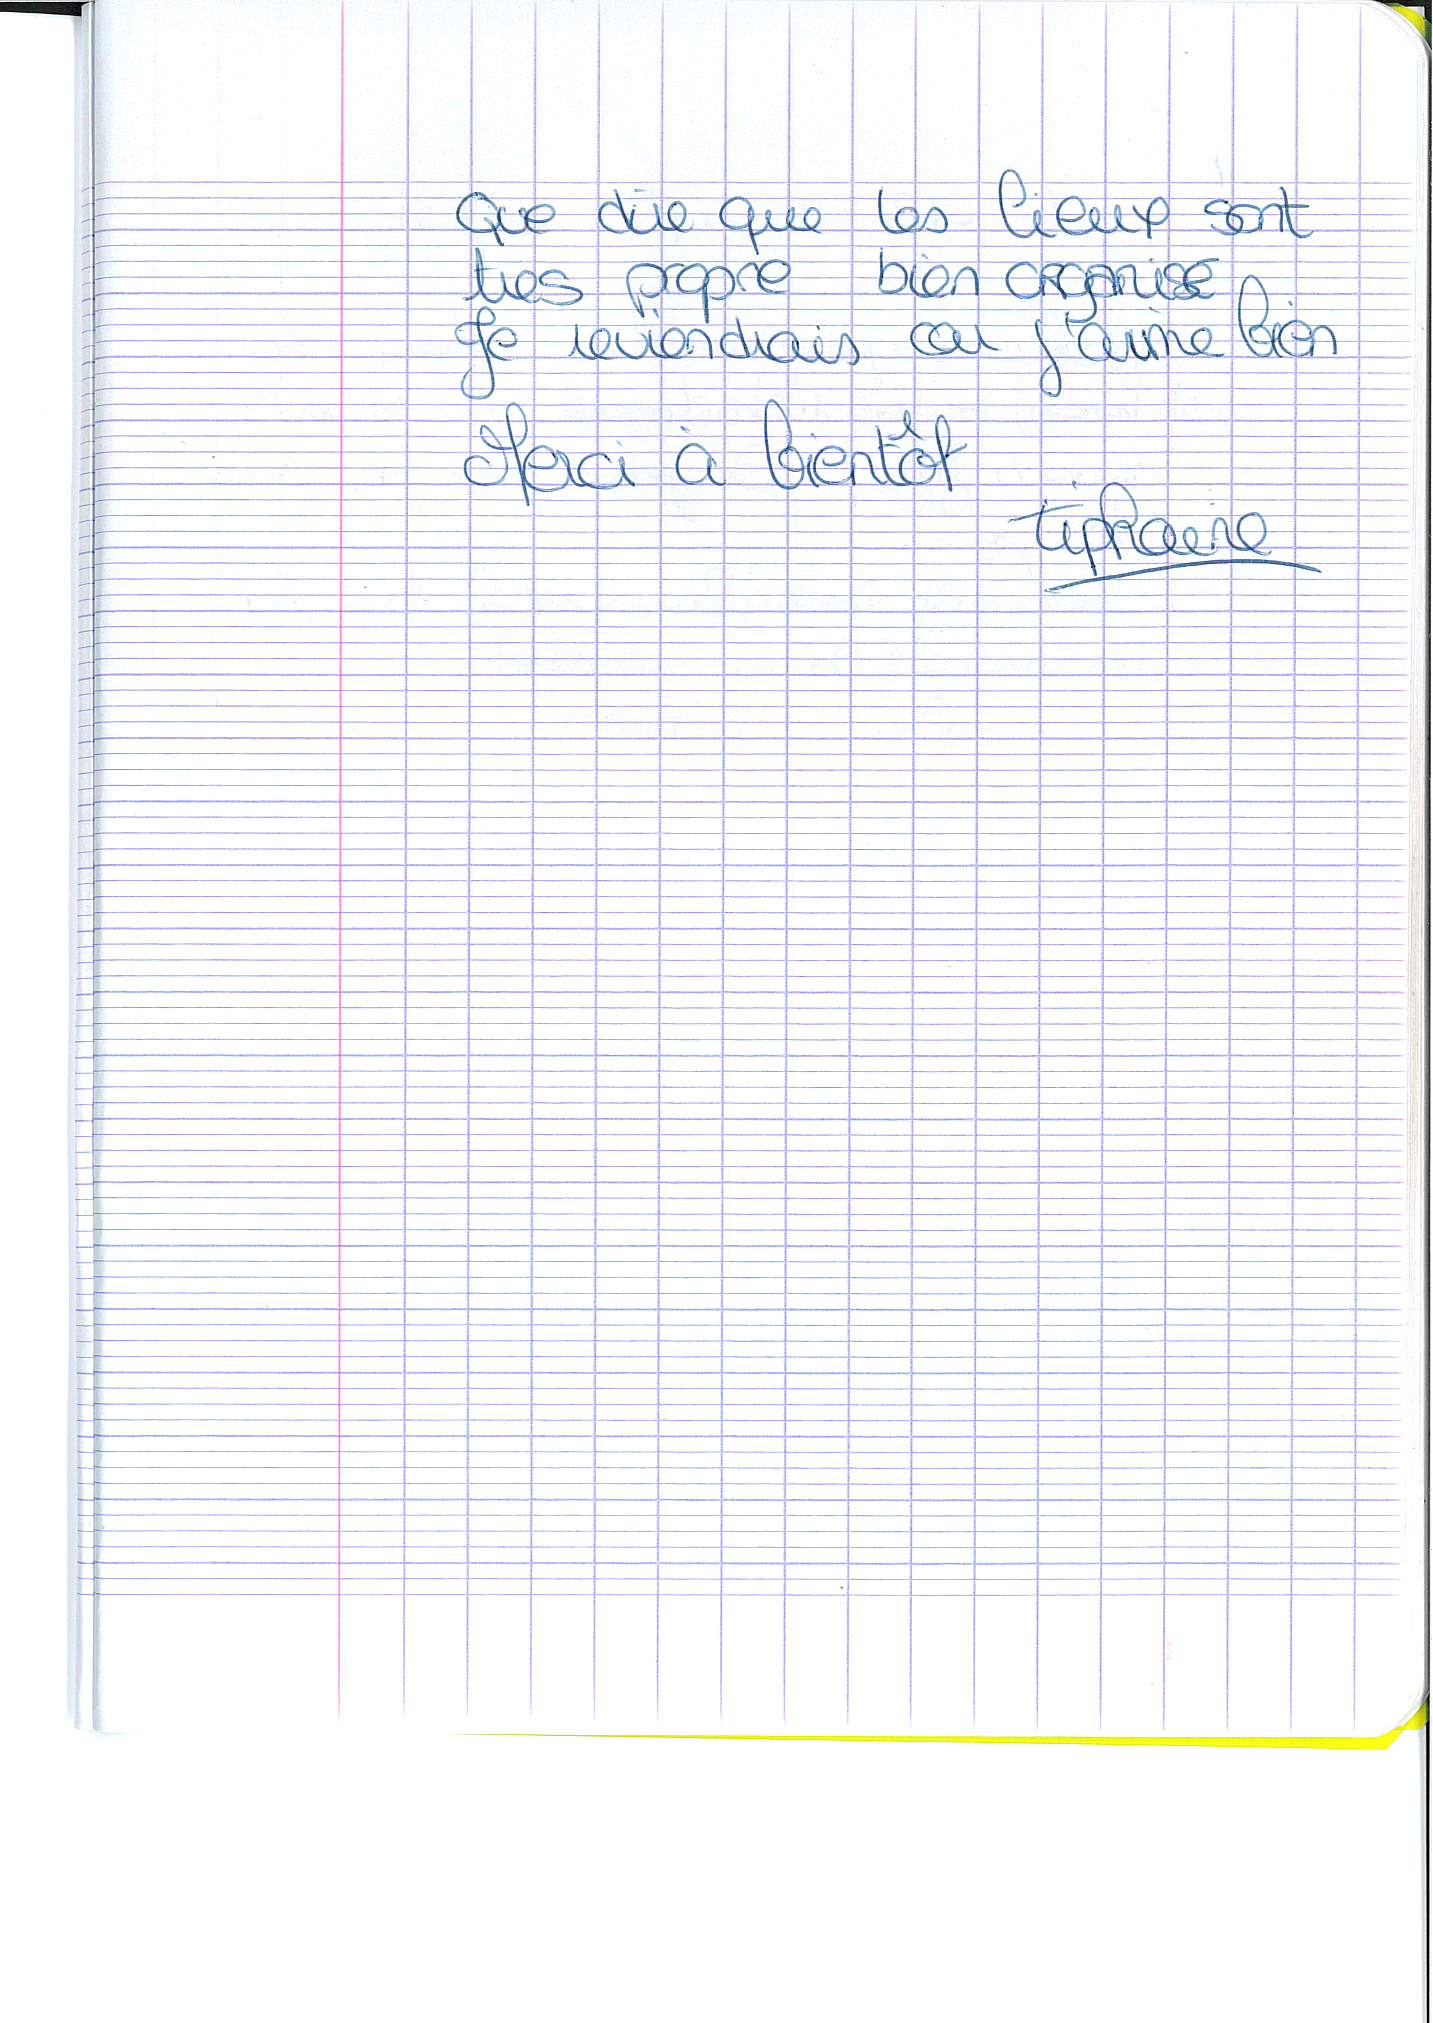 Que dire que les lieux sont
tres propre bien organisé
Je reviendrais car j'aime bien
Merci à bientôt
tiphaine